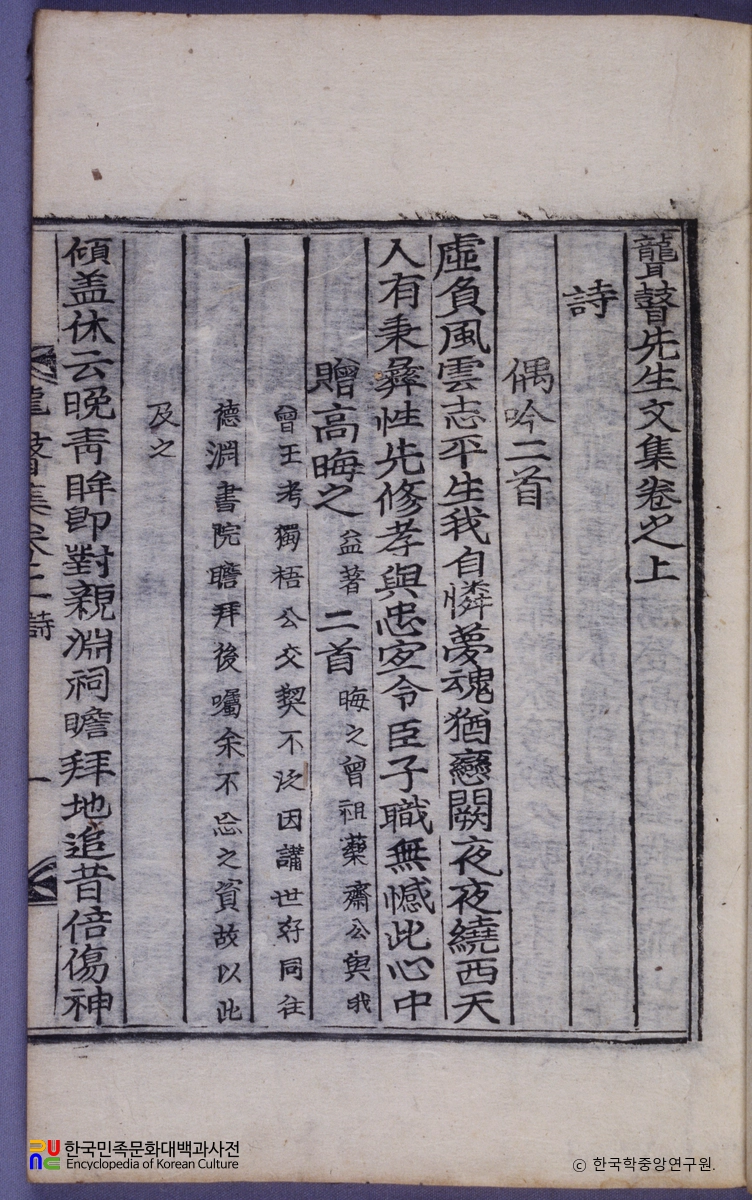 聾瞽先生文集卷之上
詩
偶吟二首
虛負風雲志平生我自憐夢魂猶戀闕夜夜繞西天
人有秉彝性先修孝與忠宓令臣子職無憾此心中
贈高晦之益著二首晦之曾祖藥齋公與我
曾王考獨梧公交契不泛因講世好同往
德淵書院瞻拜後囑余不忘之資故以此
及之
傾盖休云晩靑眸卽對親淵祠瞻拜地追昔倍傷神
聾瞽集卷上 詩 一
한국민족문화대백과사전
Encyclopedia of Korean Culture
© 한국학중앙연구원.